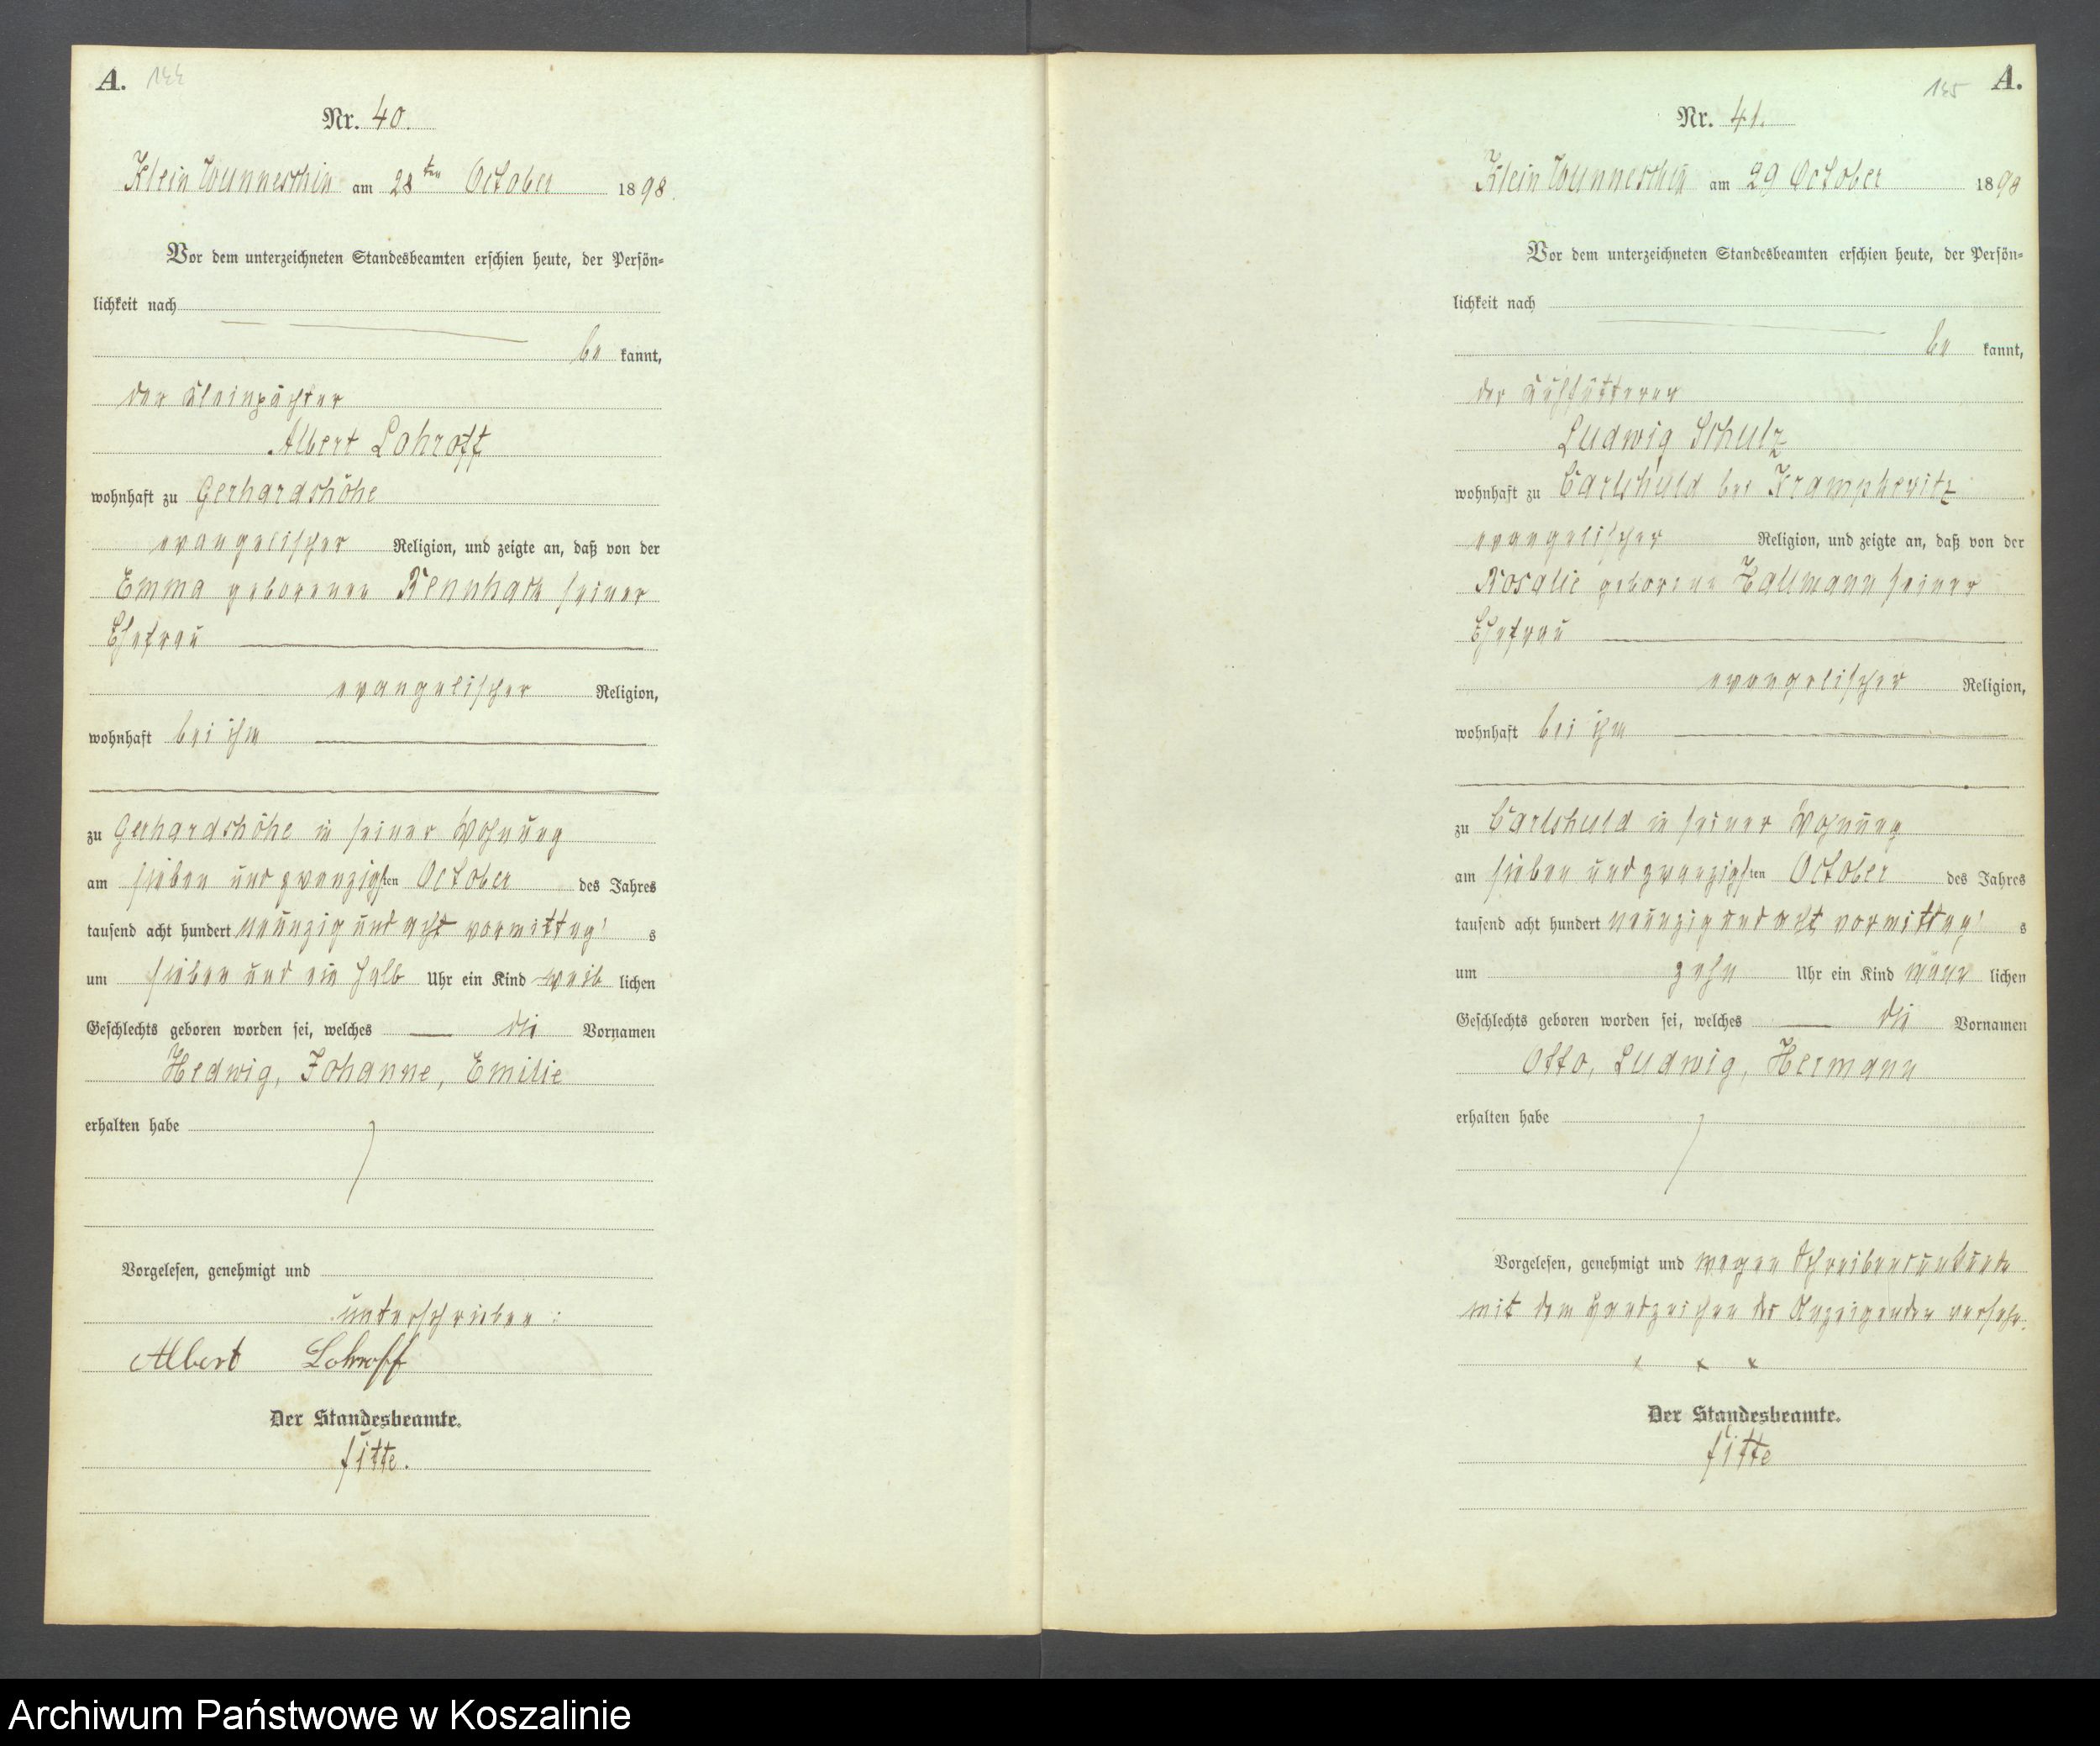 A. 144
Nr. 40.
Klein Wunneschin am 28ten October 1898.
Vor dem unterzeichneten Standesbeamten erschien heute, der Persön-
lichkeit nach
be kannt,
der Kleinpächter
Albert Lohroff
wohnhaft zu Gerhardshöhe
evangelischer Religion, und zeigte an, daß von der
Emma geborenen seiner
Ehefrau
evangelischer Religion,
wohnhaft bei ihm
zu Gerhardshöhe in seiner Wohnung
am sieben und zwanzigsten October des Jahres
tausend acht hundert neunzig und acht vormittags
um sieben und ein halb Uhr ein Kind weib lichen
Geschlechts geboren worden sei, welches die Vornamen
Hedwig, Johanne, Emilie
erhalten habe
Vorgelesen, genehmigt und
unterschrieben:
Albert Lohroff
Der Standesbeamte.
Fitte.
145 A.
Nr. 41.
Klein Wunneschin am 29 October 1898
Vor dem unterzeichneten Standesbeamten erschien heute, der Persön-
lichkeit nach
be kannt,
der Kuhfütterer
Ludwig Schulz
wohnhaft zu Carlshuld bei Krampkewitz
evangelischer Religion, und zeigte an, daß von der
Rosalie geborene Hallmann seiner
Ehefrau
evangelischer Religion,
wohnhaft bei ihm
zu Carlshuld in seiner Wohnung
am sieben und zwanzigsten October des Jahres
tausend acht hundert neunzig und acht vormittags
um zehn Uhr ein Kind männ lichen
Geschlechts geboren worden sei, welches die Vornamen
Otto, Ludwig, Hermann
erhalten habe
Vorgelesen, genehmigt und wegen Schreibensunkunde
mit dem Handzeichen des Anzeigenden versehn.
x x x
Der Standesbeamte.
Fitte
Archiwum Państwowe w Koszalinie